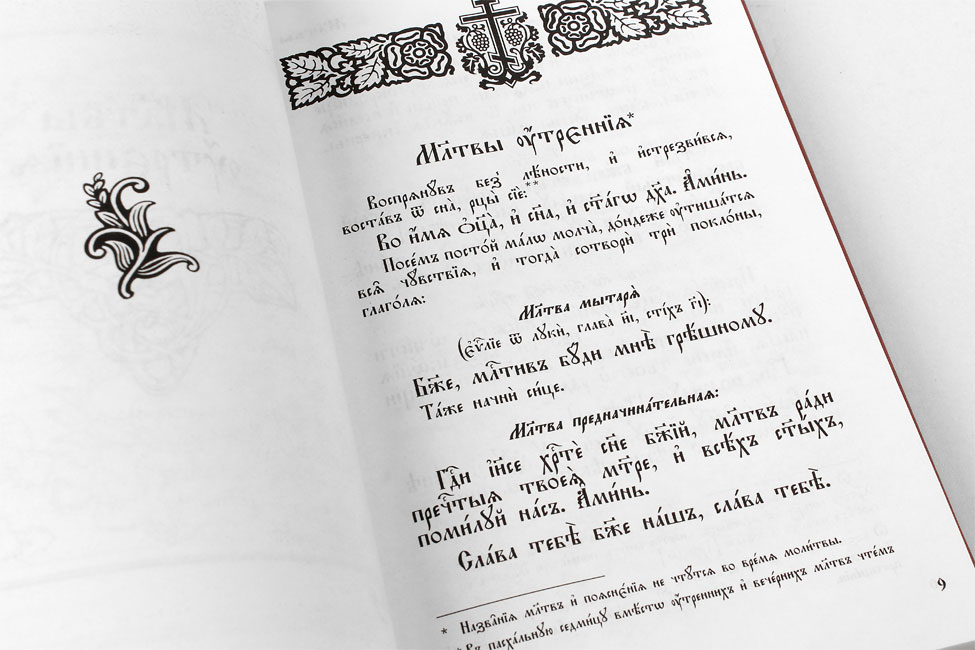 Мл҃твы ᲂу҆́треннїѧ*
Воспрѧ́нꙋвъ без̾ лѣ́ности, и҆ и҆стрезви́всѧ,
воста́въ ѿ сна̀, рцы̀ сїѐ:**
Во и҆́мѧ ѻ҆ц҃а̀, и҆ сн҃а, и҆ ст҃а́гѡ дх҃а. А҆ми́нь.
Посе́мъ посто́й ма́лѡ молча̀, до́ндеже ᲂу҆тиша́тсѧ
всѧ̑ чꙋ̑вствїѧ, и҆ тогда̀ сотворѝ трѝ покло́ны,
глаго́лѧ:
Мл҃тва мытарѧ̀
(є҆ѵⷢ҇лїе ѿ лꙋкѝ, глава̀ и҃і, сті́хъ г҃і):
Бж҃е, млⷭ҇тивъ бꙋ́ди мнѣ̀ грѣ́шномꙋ.
Та́же начнѝ си́це.
Мл҃тва предначина́тельнаѧ:
Гдⷭ҇и і҆и҃се хрⷭ҇тѐ сн҃е бж҃їй, мл҃твъ ра́ди
пречⷭ҇тыѧ твоеѧ̀ мт҃ре, и҆ всѣ́хъ ст҃ы́хъ,
поми́лꙋй на́съ. А҆ми́нь.
Сла́ва тебѣ̀ бж҃е на́шъ, сла́ва тебѣ̀.
* Назва̑нїѧ мл҃твъ и҆ поѧснє́нїѧ не чтꙋ́тсѧ во вре́мѧ моли́твы.
** Въ пасха́льнꙋю седми́цꙋ вмѣ́стѡ ᲂу҆́треннихъ и҆ вече́рнихъ мл҃твъ чте́мъ
9